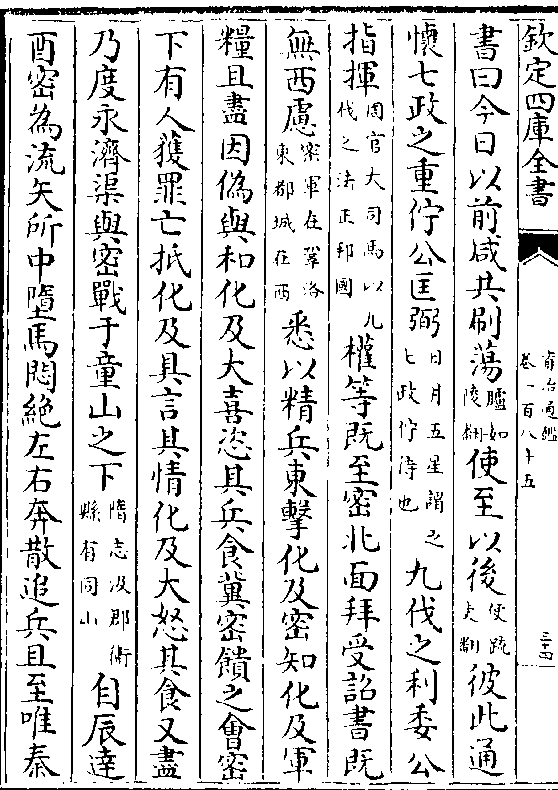 欽定四庫全書
資治通鑑
卷一百八十五
三十四
書曰今日以前咸共刷蕩臚如陵翻使至以後使疏吏翻彼此通
懷七政之重佇公匡弼日月五星謂之七政佇待也九伐之利委公
指揮周官大司馬以九伐之法正邦國權等既至密北面拜受詔書既
無西慮密軍在鞏洛東都城在西悉以精兵東擊化及密知化及軍
糧且盡因偽與和化及大喜恣其兵食冀密饋之會密
下有人獲罪亡抵化及具言其情化及大怒其食又盡
乃度永濟渠與密戰于童山之下隋志汲郡衛縣有同山自辰達
酉密為流矢所中墮馬悶絶左右奔散追兵且至唯秦